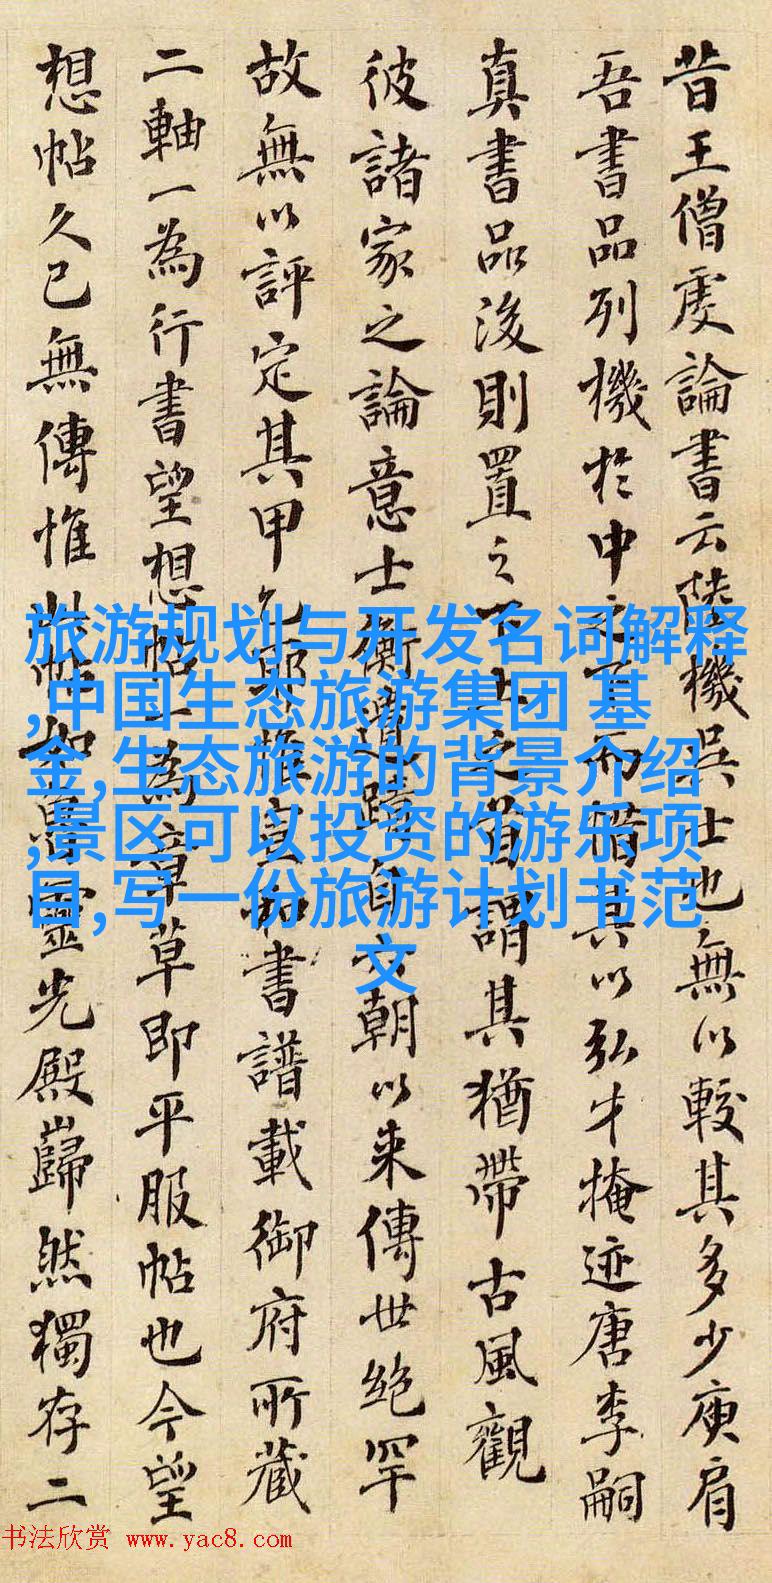 昔王僧虔論書云陸機吳士也無以較其多少庾肩
吾書品列機於中之下而惜其以弘才掩迹唐李嗣
真書品後則置之下上之首謂其猶帶古風觀
彼諸家之論意士衡遺蹟自六朝以来傳世絶罕
故無以評定其甲乙耶惟宣和書譜載御府所藏
二軸一為行書望想帖一為章草即平服帖也今望
想帖久已無傳惟此帖如魯靈光殿巋然獨存二
旅游规划与开发名词解释
,中国生态旅游集团 基
金,生态旅游的背景介绍
,景区可以投资的游乐项
目,写一份旅游计划书范
文
书法欣赏 www.yac8.com